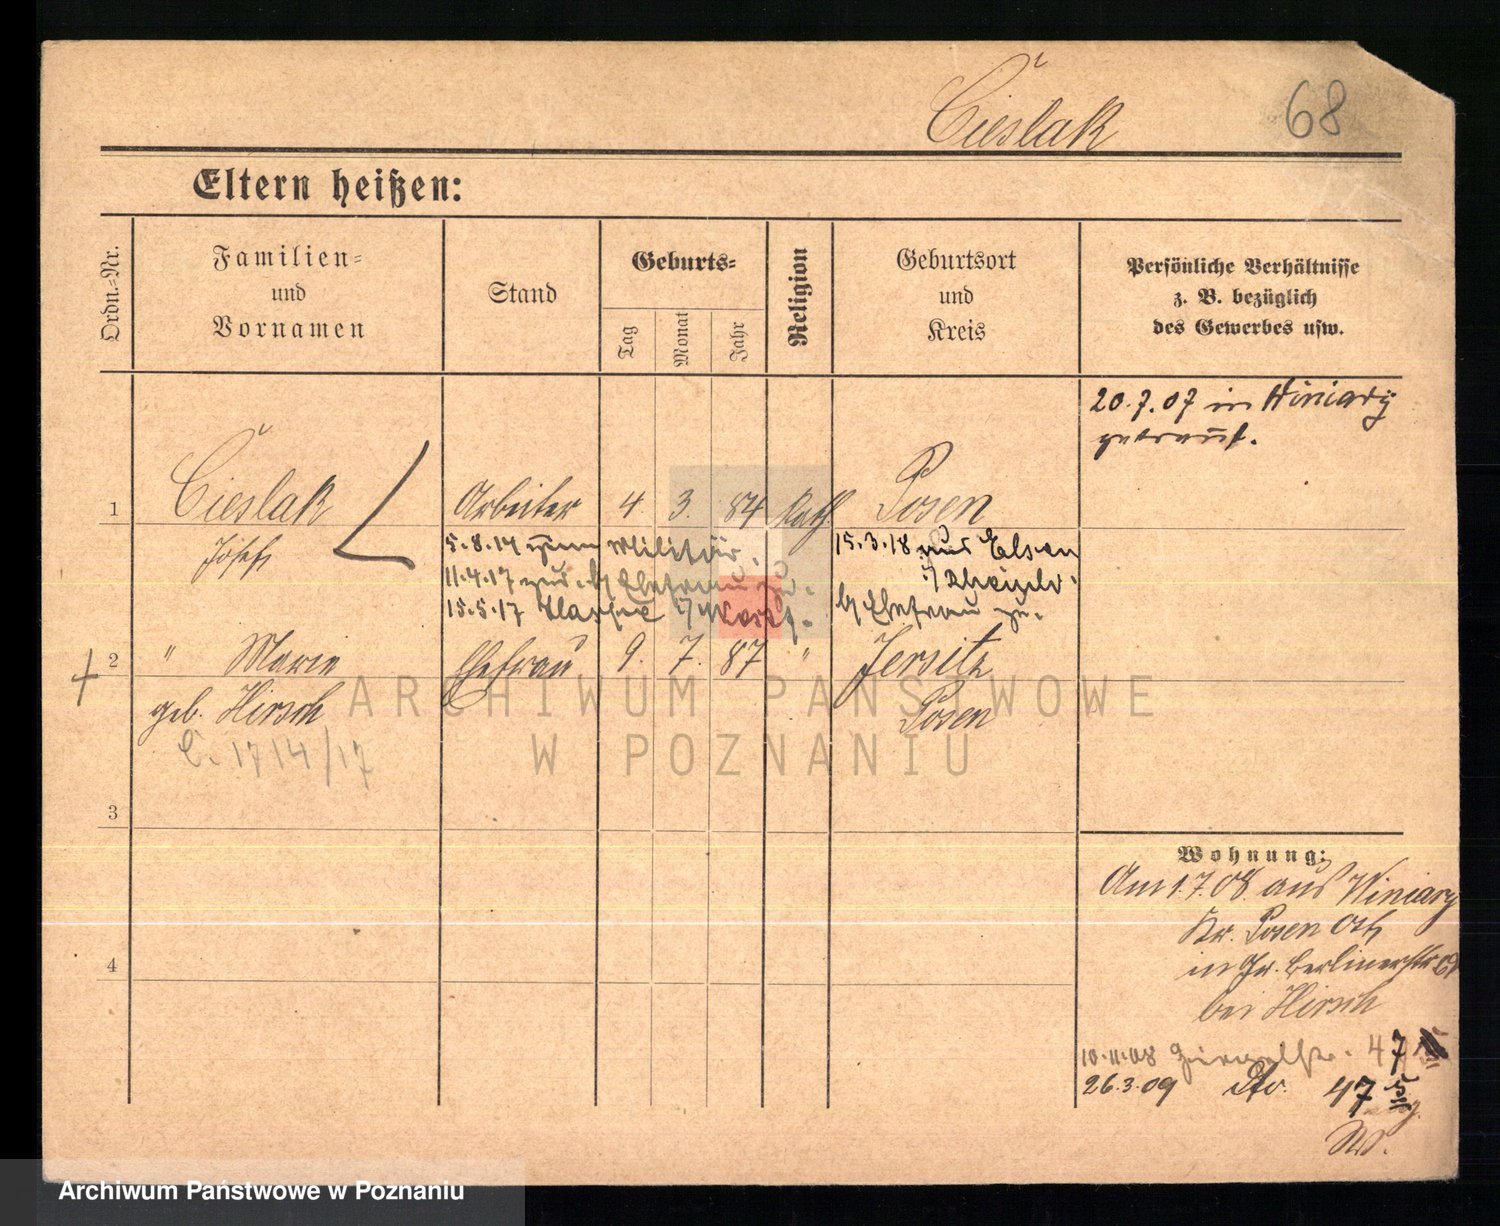 Cieslak
68
Eltern heißen:
Ordn.-Nr.
Familien- und Vornamen
Stand
Geburts-
Tag
Monat
Jahr
Religion
Geburtsort und Kreis
Persönliche Verhältnisse z. B. bezüglich des Gewerbes usw.
20.7.07 in Winiary
getraut.
1 Cieslak Arbeiter 4. 3. 84 kath. Posen
Josef
5.8.14 zum Militär.
11.4.17 zur. Ehefrau zu.
15.5.17
15.3.18 aus Elsen
Ehefrau zu.
2 " Marie Ehefrau 9. 7. 87 " Jersitz
geb. Hirsch Posen
C. 1714/17
3
4
Wohnung:
Am 1.7.08 aus Winiary
Kr. Posen Ost
in Gr. Berlinerstr
bei Hirsch
10.11.08 47
26.3.09 dto. 47
ARCHIWUM PAŃSTWOWE
W POZNANIU
Archiwum Państwowe w Poznaniu